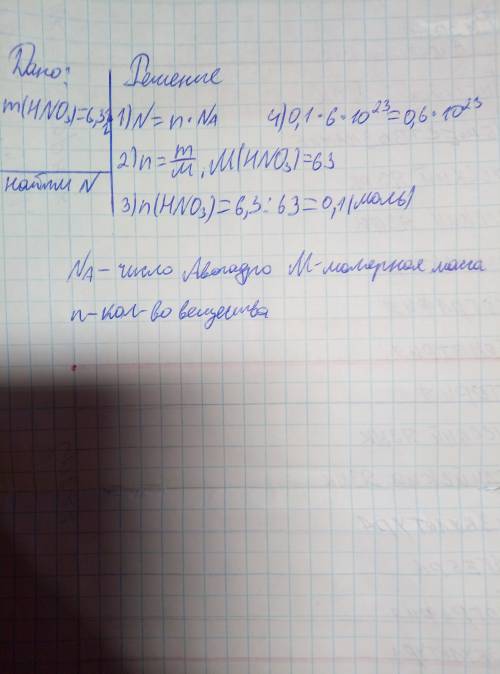 Дано:
m(HNO₃)=6,3г
найти N
Решение
1) N = n · NA
2) n = m/M, M(HNO₃)=63
3) n(HNO₃)=6,3:63=0,1(моль)
4) 0,1·6·10²³=0,6·10²³
NA – число Авогадро M – молярная масса
n – кол-во вещества